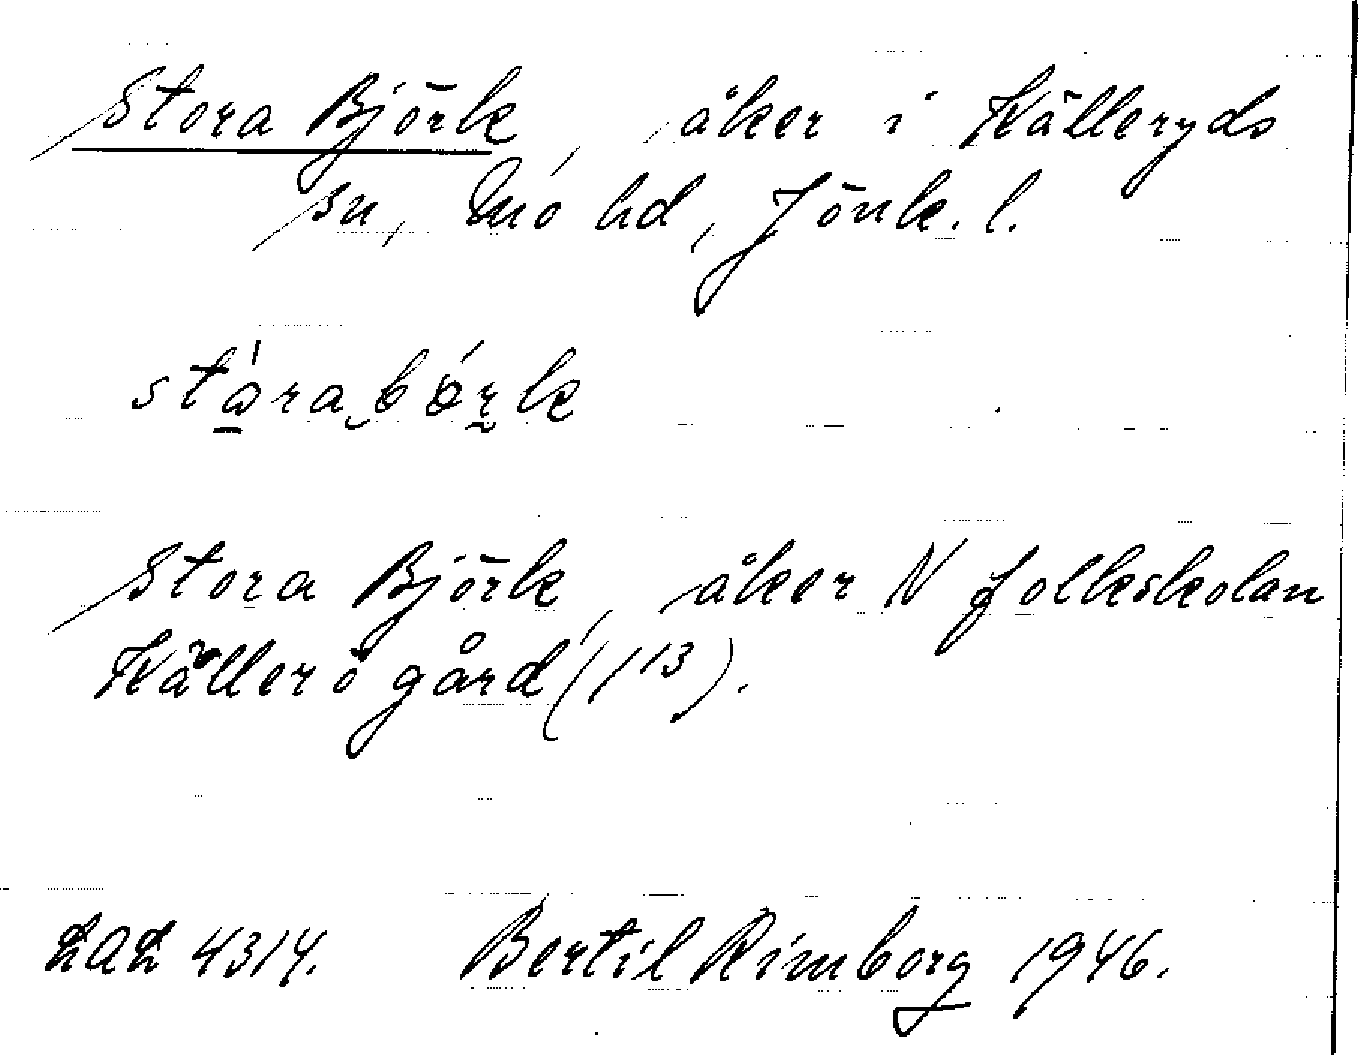 Stora Björk, åker i Källeryds
sn, Mo hd, Jönk. l.
stora börk
Stora Björk, åker N folkskolan
Källerö gård (1¹³).
LAL 4314. Bertil Rimborg 1946.